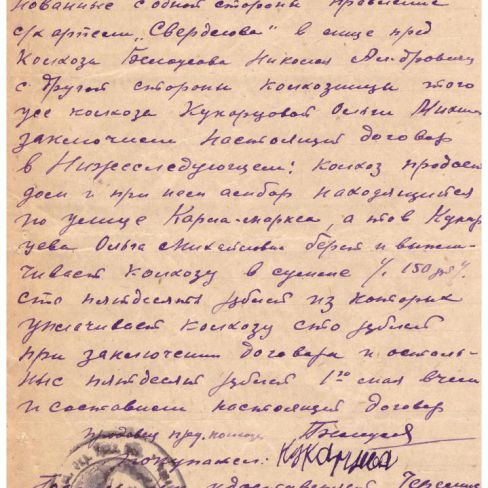 нованные с одной стороны правление
с/х артели „Свердлова" в лице пред
колхоза Белоусова Николая
с другой стороны колхозницы этого
уже колхоза Кухарцовой Ольги
заключили настоящий договор
в Нижеследующем: колхоз продает
дом и при нем амбар находящийся
по улице Карла-маркса, а тов Кухар
цева Ольга Михайловна берет и выпла-
чивает колхозу в сумме 150 руб
сто пятдесять рублей из которых
уплачивает колхозу сто рублей
при заключении договора и осталь-
ные пятдесят рублей 1го мая
и составили настоящий договор
продовец пред. колхоза
покупатель: